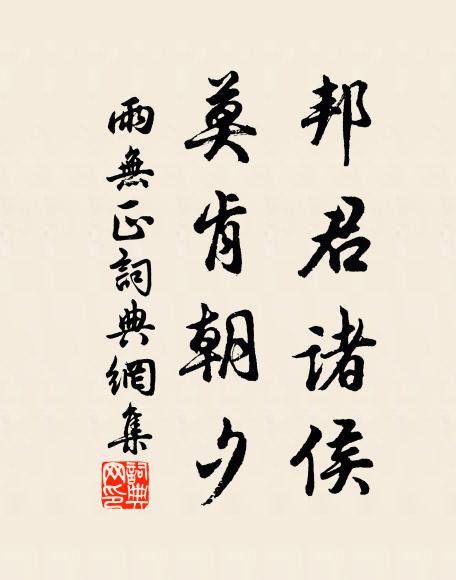 邦君诸侯
莫肯朝夕
雨無正詞典網集
詞典网印